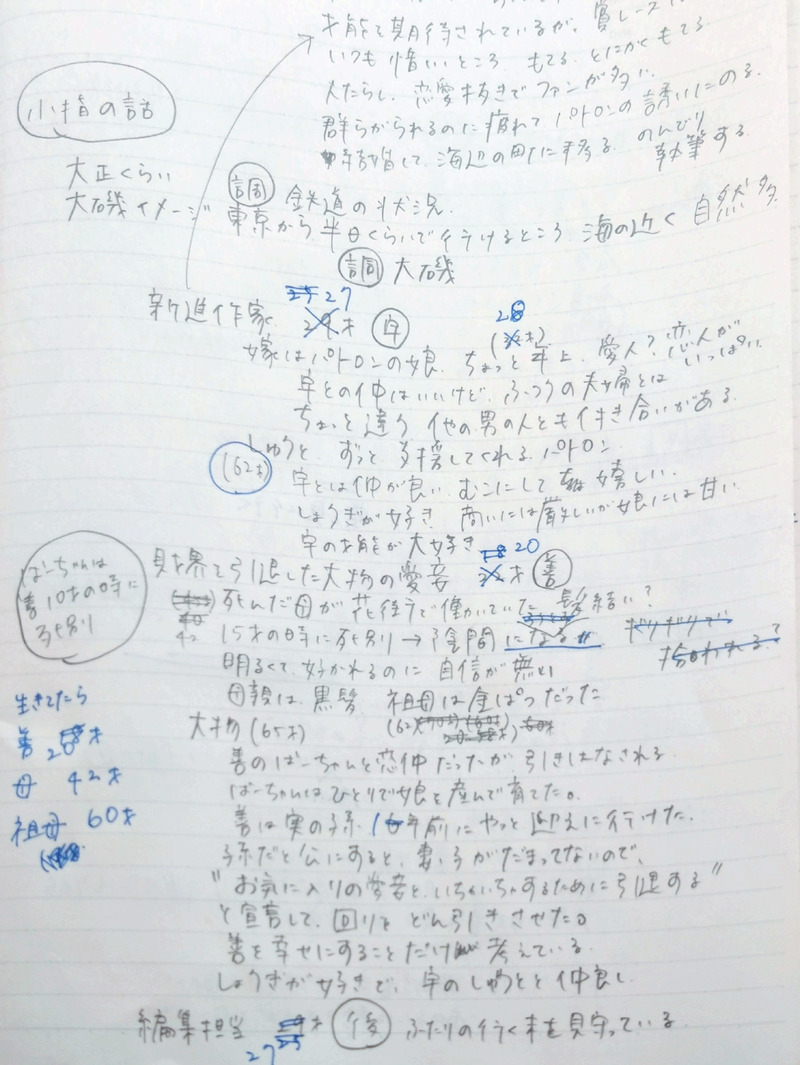 才能を期待されているが、賞レース
いつも惜いところ。もてる。とにかくもてる
人たらし。恋愛抜きでファンが多い。
群らがられるのに疲れてパトロンの誘いにのる。
して、海辺の町に移る。のんびり
執筆する
小指の話
大正くらい
大磯イメージ
調 鉄道の状況.
東京から半日くらいで行けるところ 海の近く 自然多
調 大磯
27
新進作家 才 字
28
嫁はパトロンの娘、ちょっと年上、愛人?恋人が
いっぱい
字との仲はいいけど、ふつうの夫婦とは
ちょっと違う 他の男の人とも付き合いがある。
しゅうと ずっと支援してくれるパトロン
(62才)
字とは仲が良い。むこにして 嬉しい.
しょうぎが好き. 商いには厳しいが娘には甘い
字の才能が大好き
20
財界を引退した大物の愛妾 才 善
死んだ母が花街で働いていた 髪結い?
15才の時に死別→陰間になる
ギリギリで
拾われる?
明るくて、好かれるのに自信が無い
母親は黒髪 祖母は金ぱつだった
ばーちゃんは
善10才の時に
死別
生きてたら
善 20才
母 42才
祖母 60才
大物(65才)
善のばーちゃんと恋仲だったが引きはなされる
ばーちゃんはひとりで娘を産んで育てた。
善は実の孫。年前にやっと迎えに行けた.
孫だと公にすると、妻、子がだまってないので、
"お気に入りの愛妾といちゃいちゃするために引退する"
と宣言して、回りをどん引きさせた。
善を幸せにすることだけ考えている。
しょうぎが好きで、字のしゅうとと仲良し
編集担当 才 後 ふたりの行く末を見守っている.
27